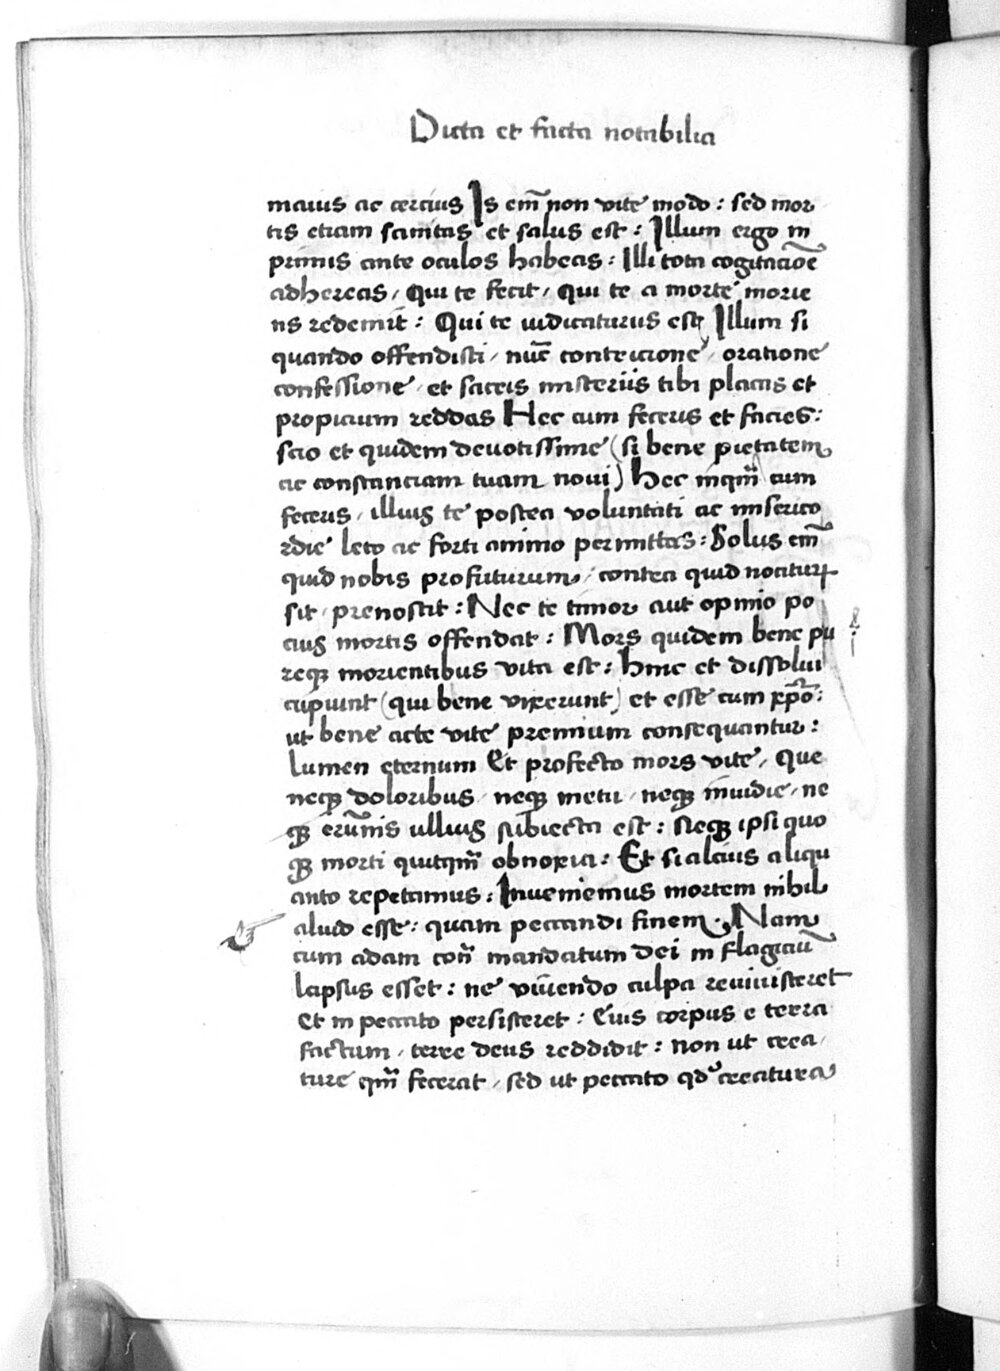 Dicta et facta notabilia
maius ac cercius Is em̄ non vite modo : sed mor
tis etiam sanitas et salus est : Illum ergo in
primis ante oculos habeas : Illi tota cogitacio̅e
adhereas / Qui te fecit / qui te a morte morie
ns redemit : Qui te iudicaturus est Illum si
quando offendisti / nūc contricione / oratione
confessione / et sacris misteriis tibi placas et
propicium reddas Hec cum feceris et facies :
scio et quidem deuotissime (si bene pietatem
ac constanciam tuam noui) Hec inqm̄ cum
feceris / illius te postea voluntati ac miserico
rdie leto ac forti animo permittas : Solus em̄
quid nobis profuturum / contra quid nociturꝝ
sit / prenoscit : Nec te timor aut opinio po
cius mortis offendat : Mors quidem bene pu
reqꝫ morientibus vita est : hinc et dissolui
cupiunt (qui bene vixerunt) et esse cum xp̄o :
ut bene acte vite premium consequantur :
lumen eternum Et profecto mors vite / Que
neqꝫ doloribus / neqꝫ metu / neqꝫ inuidie / ne
qꝫ erūnis ullius subiecta est : sicqꝫ ipsi quo
qꝫ morti quicqm̄ obnoxia : Et si alcius aliqu
anto repetamus : Inueniemus mortem nihil
aliud esse : quam peccandi finem . Nam
cum adam con̄ mandatum dei in flagiciū
lapsus esset : ne viuendo culpa reuiuisceret
Et in peccato persisteret : Eius corpus e terra
factum / terre deus reddidit : non ut crea
ture qm̄ fecerat / sed ut peccato qd̄ creatura